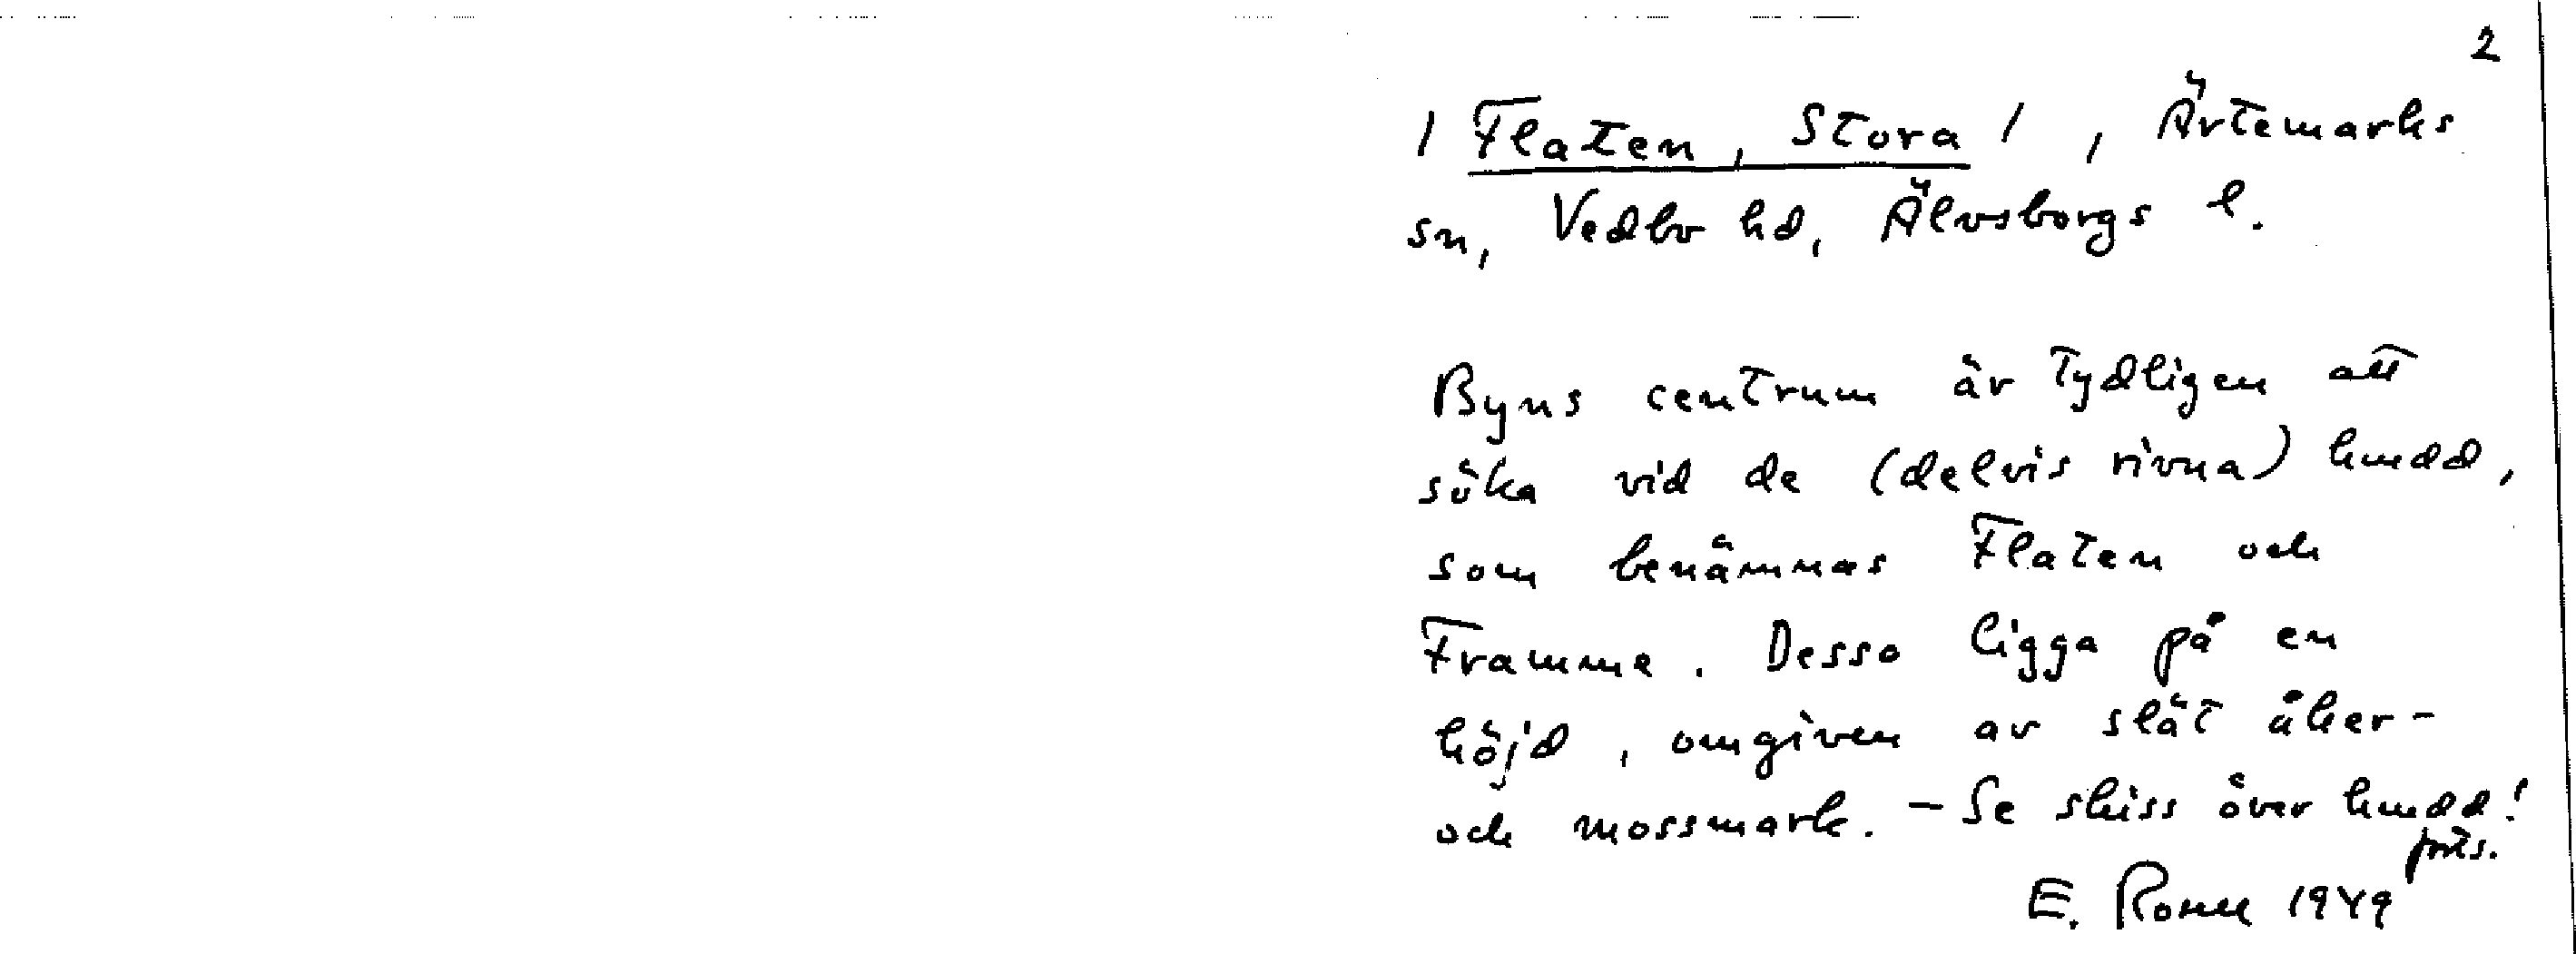 2
/ Flaten, Stora /, Ärtemarks
sn, Vedbo hd, Älvsborgs l.
Byns centrum är tydligen att
söka vid de (delvis rivna) hmdd,
som benämnas Flaten och
Framme. Dessa ligga på en
höjd, omgiven av slät åker-
och mossmark. - Se skiss över hmdd!
E. 1949